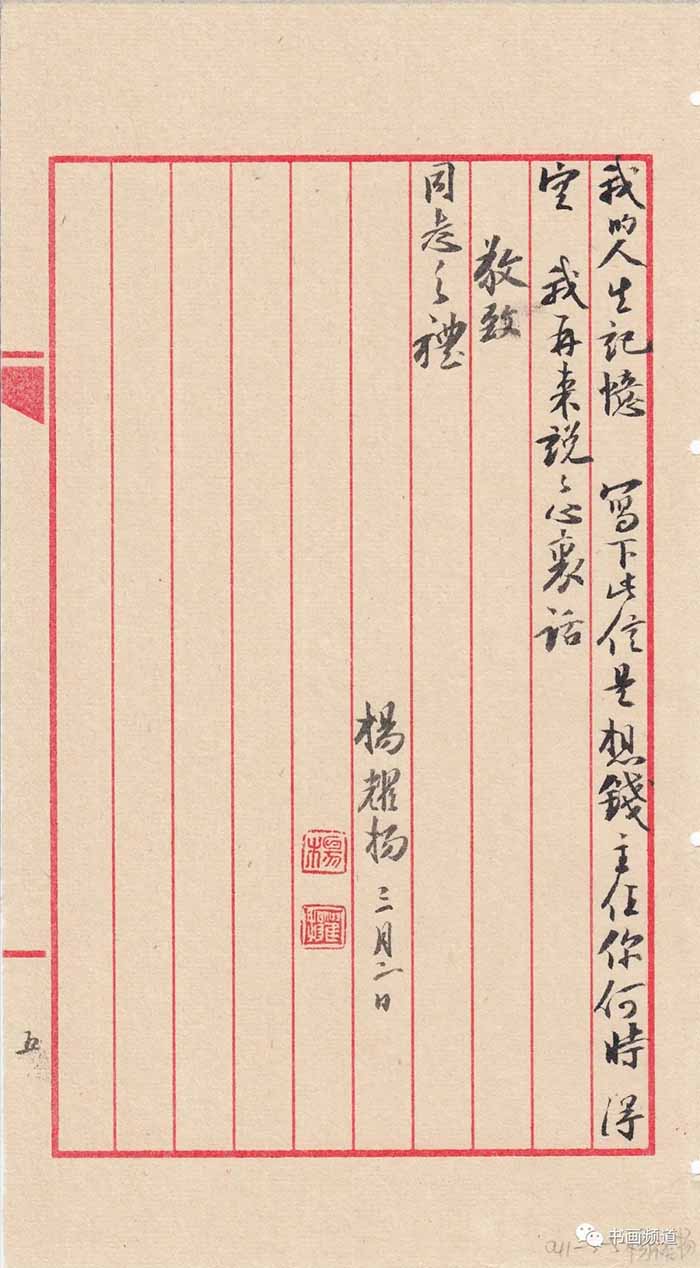 我的人生記憶 寫下此信是想錢主任你何時得
空 我再来說々心裏話
敬致
同志之禮
楊耀扬 三月二日
楊
五
书画频道